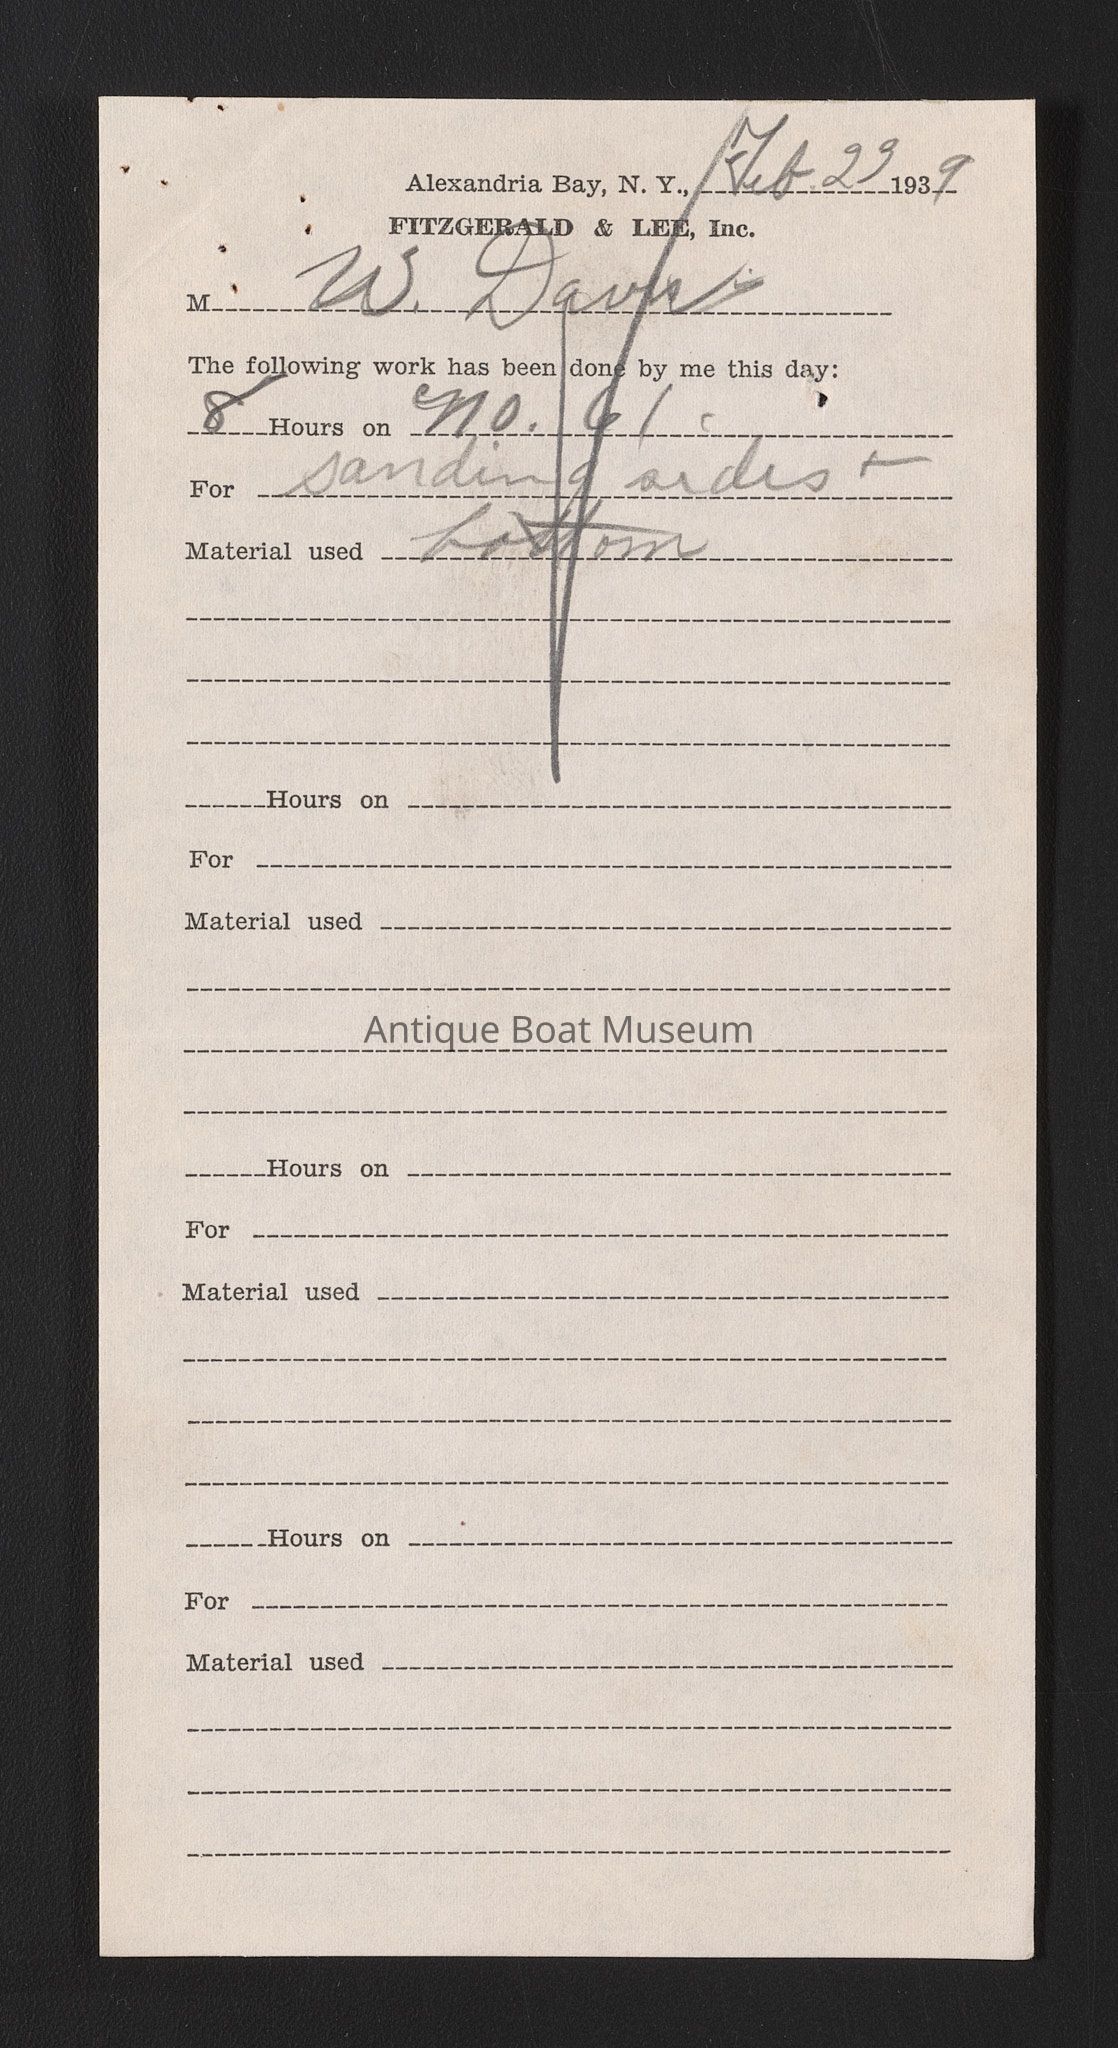 Alexandria Bay, N. Y., Feb. 23 1939
FITZGERALD & LEE, Inc.
M W. Davis
The following work has been done by me this day:
8 Hours on No. 61.
For sanding sides +
Material used bottom
Hours on
For
Material used
Antique Boat Museum
Hours on
For
Material used
Hours on
For
Material used